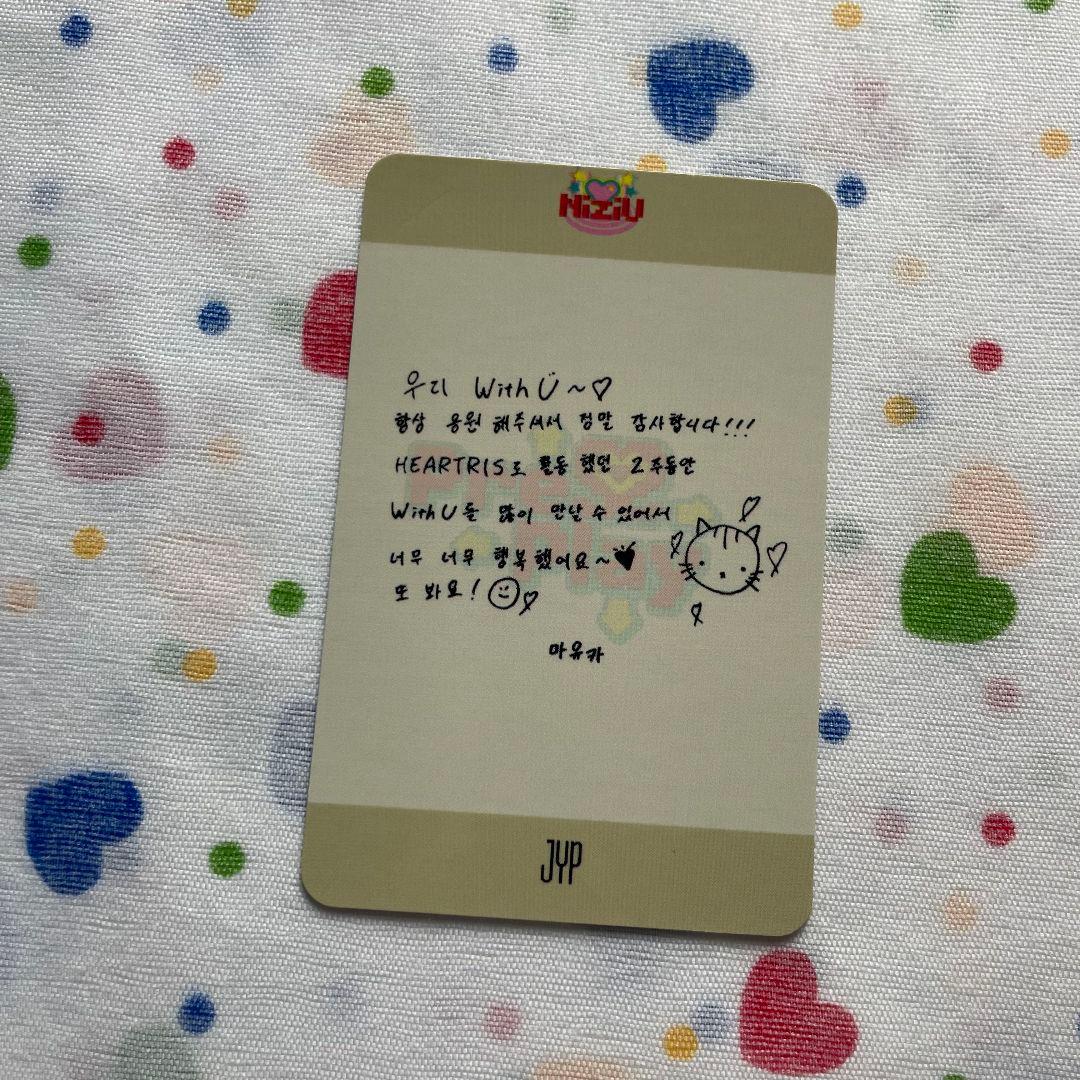 NiziU
우리 WithU~♡
항상 응원 해주셔서 정말 감사합니다!!!
HEARTRIS로 활동 했던 2주동안
WithU들 많이 만날 수 있어서
너무 너무 행복했어요~♥
또 봐요!
마유카
Press Play
JYP